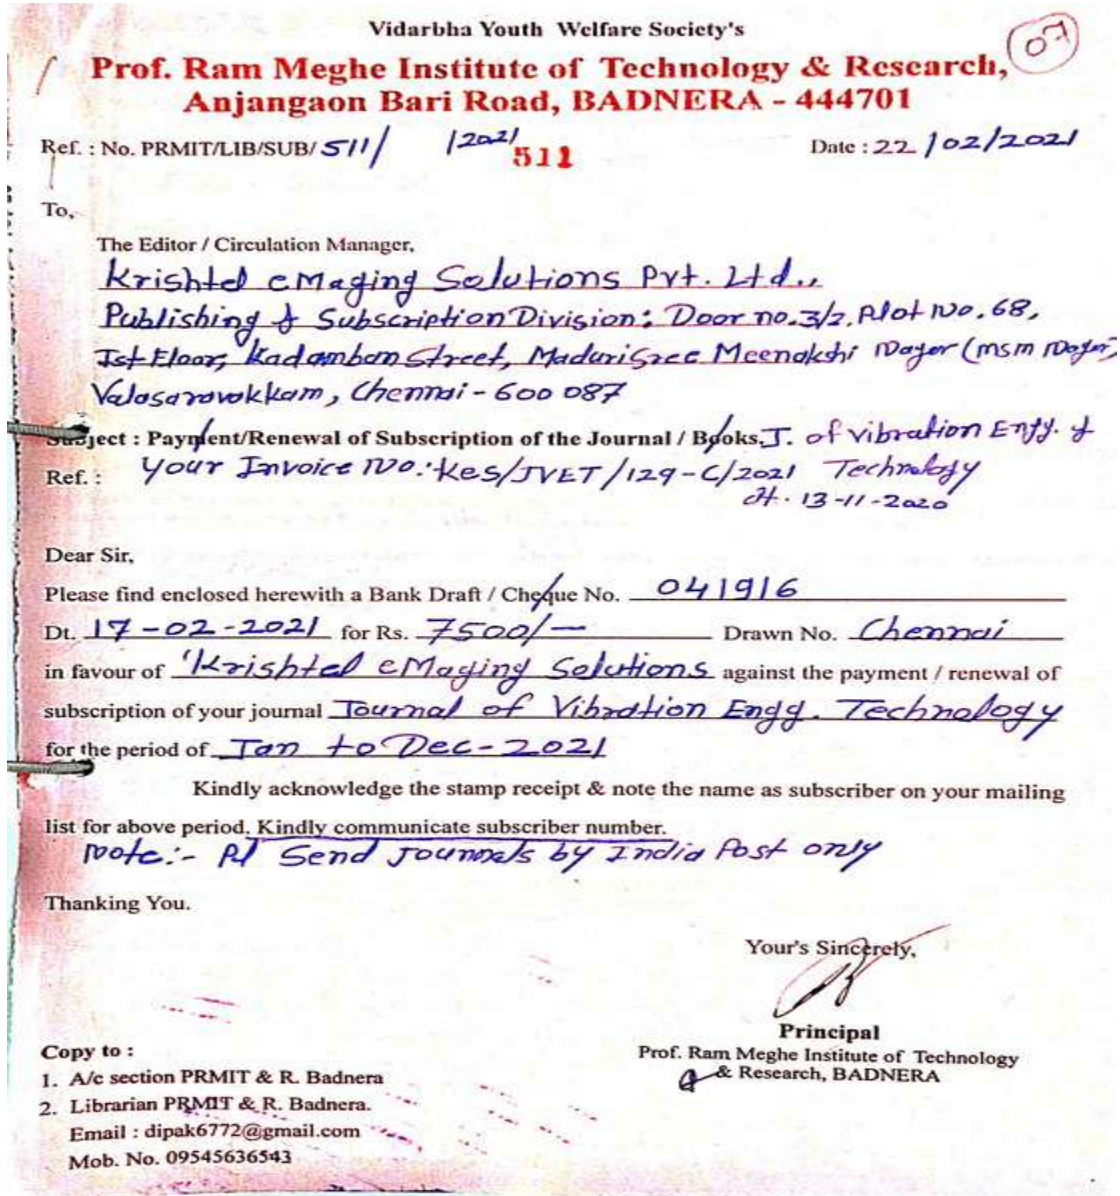 Vidarbha Youth Welfare Society's
07
Prof. Ram Meghe Institute of Technology & Research,
Anjangaon Bari Road, BADNERA - 444701
Ref. : No. PRMIT/LIB/SUB/ 511/ /2021 Date : 22/02/2021
511
To,
The Editor / Circulation Manager,
Krishtel eMaging Solutions Pvt. Ltd.,
Publishing & Subscription Division: Door no. 3/2, Plot No. 68,
Ist Floor, Kadamban Street, Madurisree Meenakshi Nagar (msm Nagar)
Valasaravakkam, Chennai - 600 087
Subject : Payment/Renewal of Subscription of the Journal / Books, J. of Vibration Engg. &
Ref. : Your Invoice No.: KeS/JVET/129-C/2021 Technology
dt. 13-11-2020
Dear Sir,
Please find enclosed herewith a Bank Draft / Cheque No. 041916
Dt. 17-02-2021 for Rs. 7500/- Drawn No. Chennai
in favour of 'Krishtel eMaging Solutions against the payment / renewal of
subscription of your journal Journal of Vibration Engg. Technology
for the period of Jan to Dec-2021
Kindly acknowledge the stamp receipt & note the name as subscriber on your mailing
list for above period. Kindly communicate subscriber number.
Note:- Pl Send Journals by India Post only
Thanking You.
Your's Sincerely,
Principal
Prof. Ram Meghe Institute of Technology
& Research, BADNERA
Copy to :
1. A/c section PRMIT & R. Badnera
2. Librarian PRMIT & R. Badnera.
Email : dipak6772@gmail.com
Mob. No. 09545636543